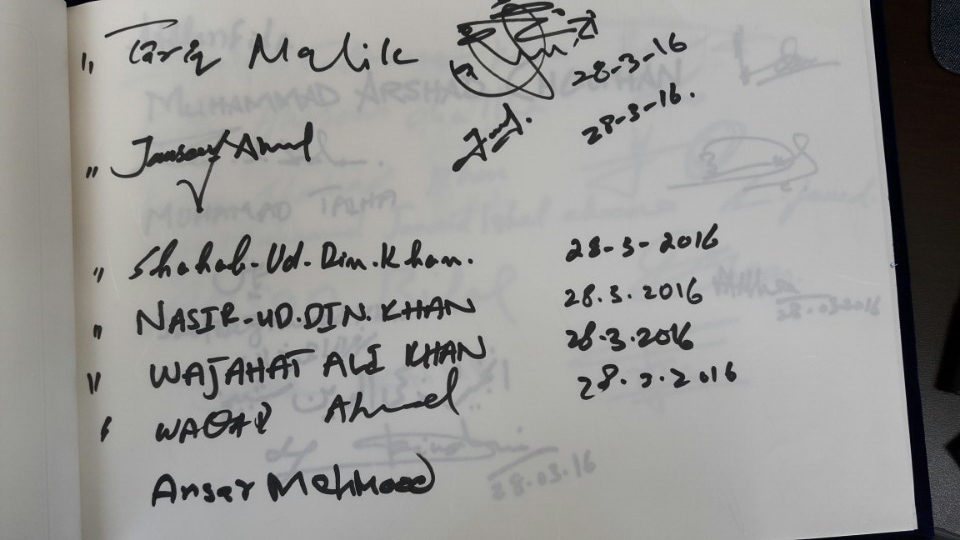 " Tariq Malik 28-3-16
" Ahmed 28-3-16.
" Shahab-Ud-Din.Khan. 28-3-2016
" NASIR-UD.DIN.KHAN 28.3.2016
" WAJAHAT ALI KHAN 28.3.2016
" WAQAR Ahmed 28.3.2016
Ansar Mehmood
28.03.16